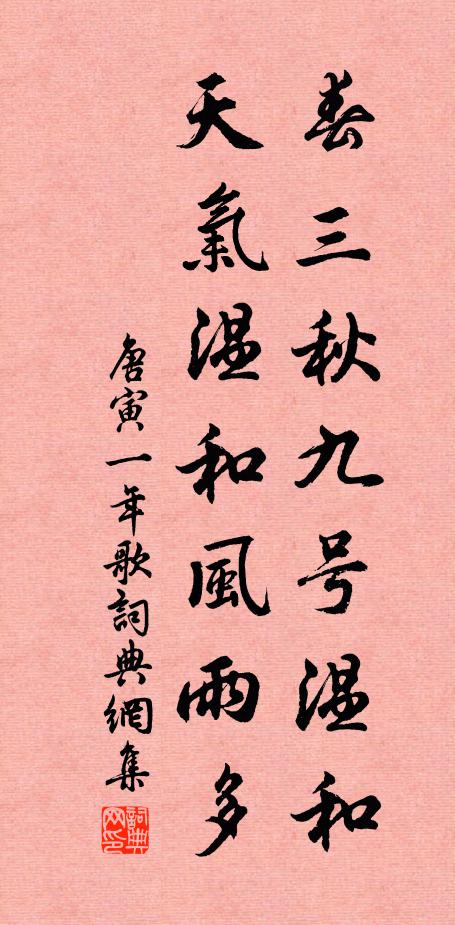 春三秋九号温和
天氣温和風雨多
唐寅一年歌詞典網集
詞典网印